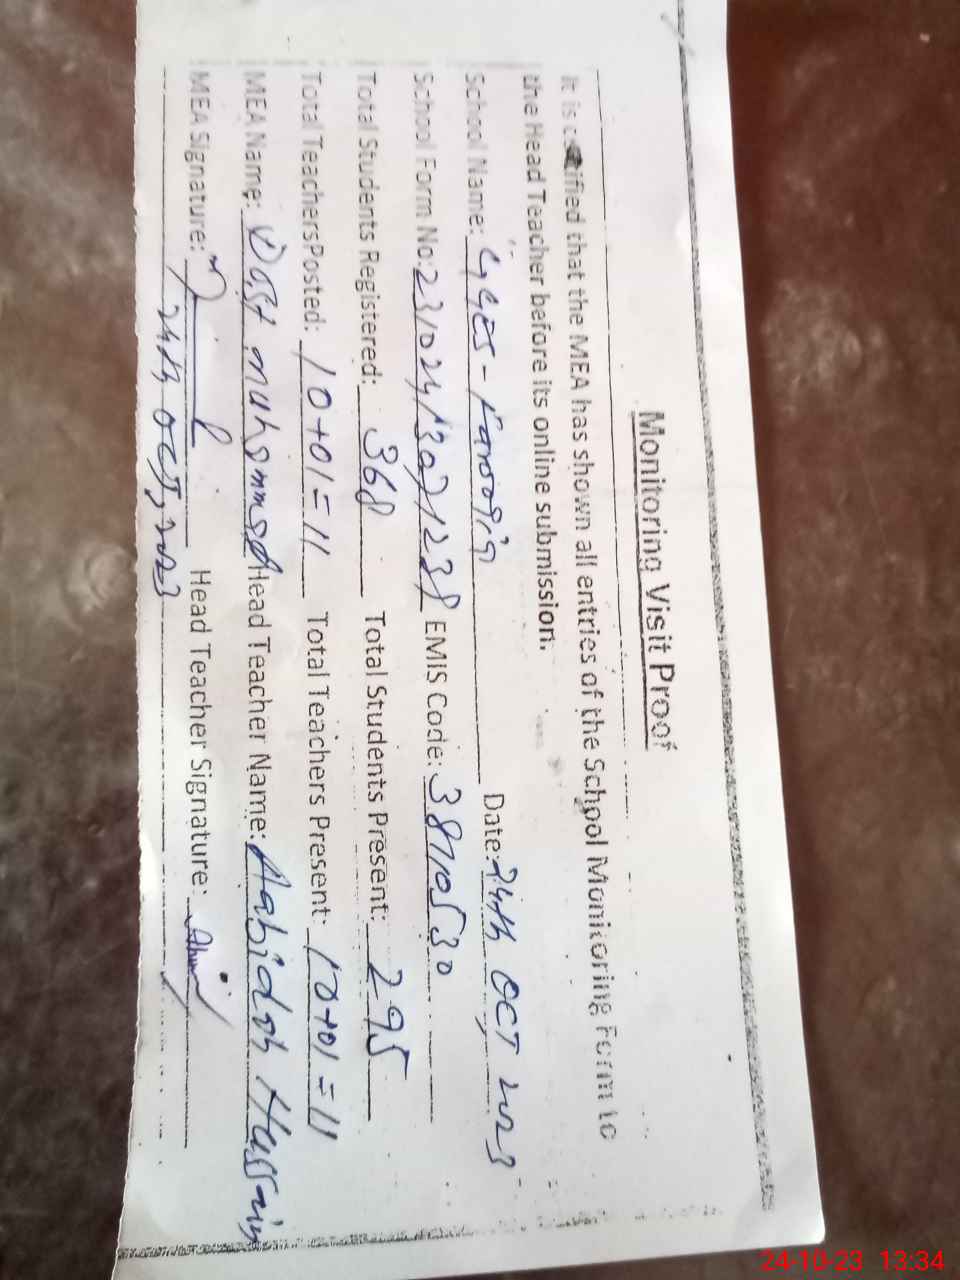 Monitoring Visit Proof
It is certified that the MEA has shown all entries of the School Monitoring Form to
the Head Teacher before its online submission.
School Name: GGES - Farooqia Date: 24th OCT 2023
School Form No: EMIS Code: 38710530
Total Students Registered: 368 Total Students Present: 295
Total Teachers Posted: 10+01=11 Total Teachers Present: 10+01=11
MEA Name: Dost muhammad Head Teacher Name: Aabidah Hussain
MEA Signature: Head Teacher Signature:
24th OCT, 2023
24-10-23 13:34